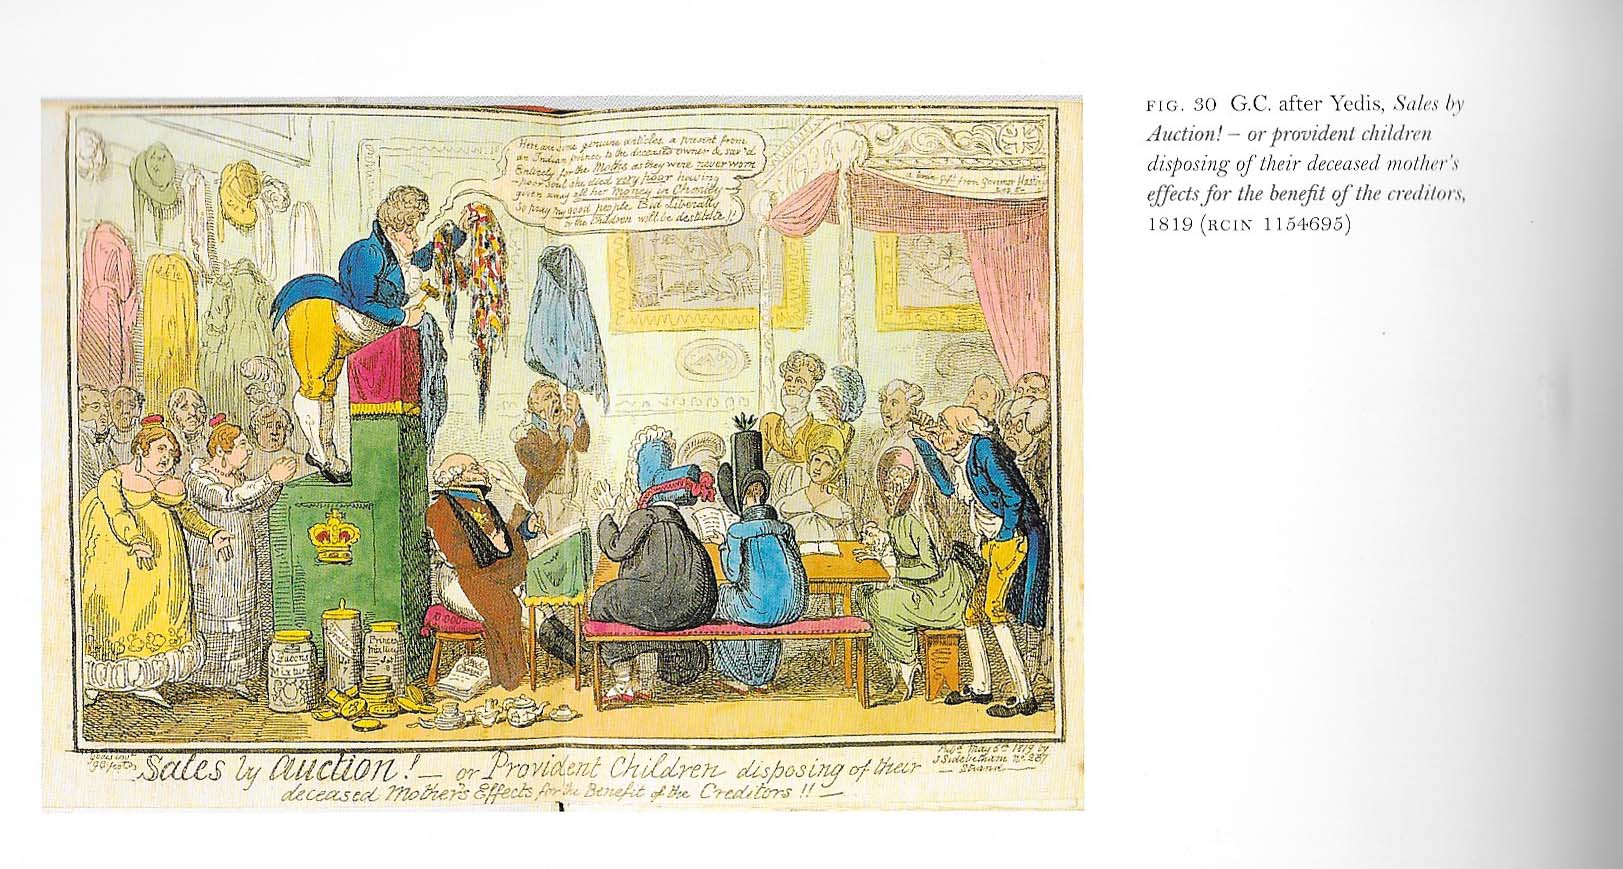 Here are some genuine articles a present from
an Indian prince to the deceas'd owner & sav'd
Entirely for the Moths as they were never worn
—poor Soul she died very poor having
given away all her Money in Charity—
So pray my good people Bid Liberally
or the Children will be destitute!!
a brie gift from Governor Hastin
FIG. 30 G.C. after Yedis, Sales by
Auction! – or provident children
disposing of their deceased mother's
effects for the benefit of the creditors,
1819 (RCIN 1154695)
Queens
Princes
Mixture
Yedis invt
G C fect
Sales by Auction! — or Provident Children disposing of their
deceased Mother's Effects for the Benefit of the Creditors!! —
Pubd May 6th 1819 by
J Sidebetham No 287
— Strand —